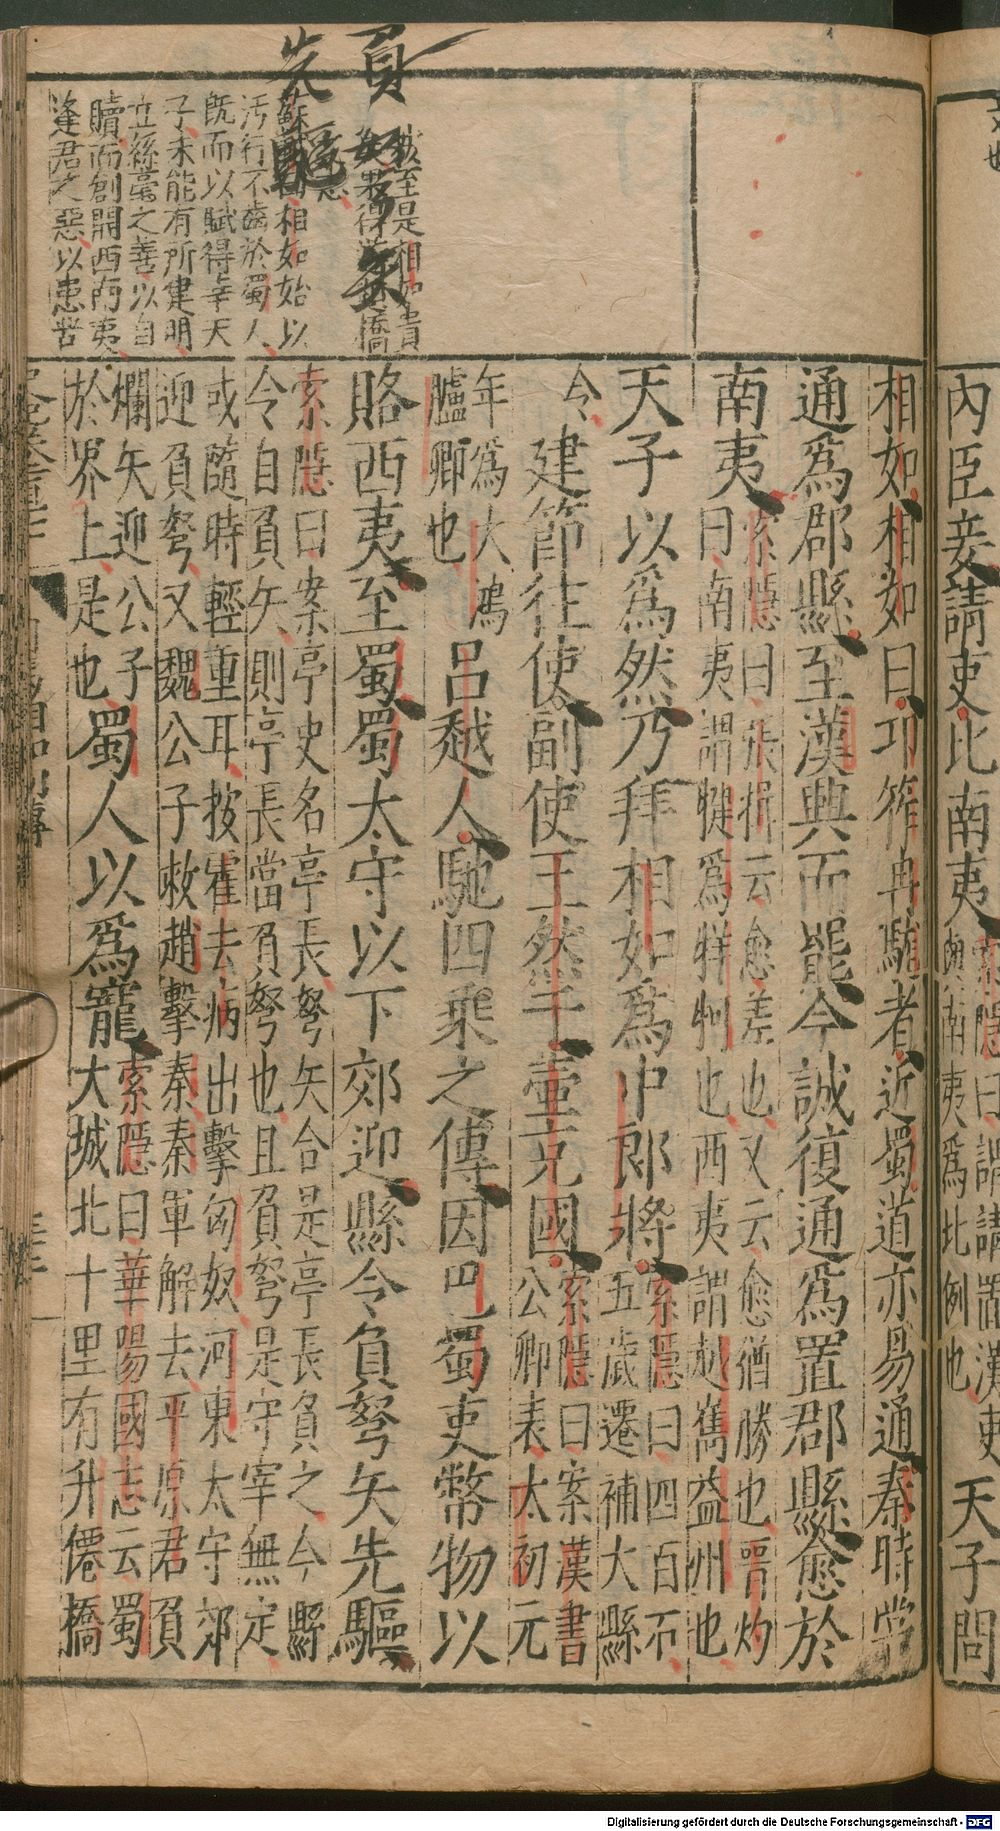 內臣妾請吏比南夷
天子問
相如相如曰卭筰冉駹者近蜀道亦易通秦時嘗
通爲郡縣至漢興而罷今誠復通爲置郡縣愈於
南夷
索隱曰張揖云愈差也又云愈猶勝也晉灼
曰南夷謂犍爲牂牁也西夷謂越巂益州也
天子以爲然乃拜相如爲中郎將
索隱曰四百石
五歲遷補大縣
令
建節往使副使王然于壷充國
索隱曰案漢書
公卿表太初元
年爲大鴻
臚卿也
呂越人馳四乘之傳因巴蜀吏幣物以
賂西夷至蜀蜀太守以下郊迎縣令負弩矢先驅
索隱曰案亭史名亭長弩矢合是亭長負之今縣
令自負矢則亭長當負弩也且負弩是守宰無定
或隨時輕重耳按霍去病出擊匈奴河東太守郊
迎負弩又魏公子救趙擊秦秦軍解去平原君負
爛矢迎公子
於界上是也
蜀人以爲寵
索隱曰華陽國志云蜀
大城北十里有升僊橋
負弩矢
先驅
至是相如貴
果得
橋
蘇
曰相如始以
汚行不齒於蜀人
旣而以賦得幸天
子未能有所建明
立絲毫之善以自
贖而創開西南夷
逢君之惡以患苦
Digitalisierung gefördert durch die Deutsche Forschungsgemeinschaft - DFG